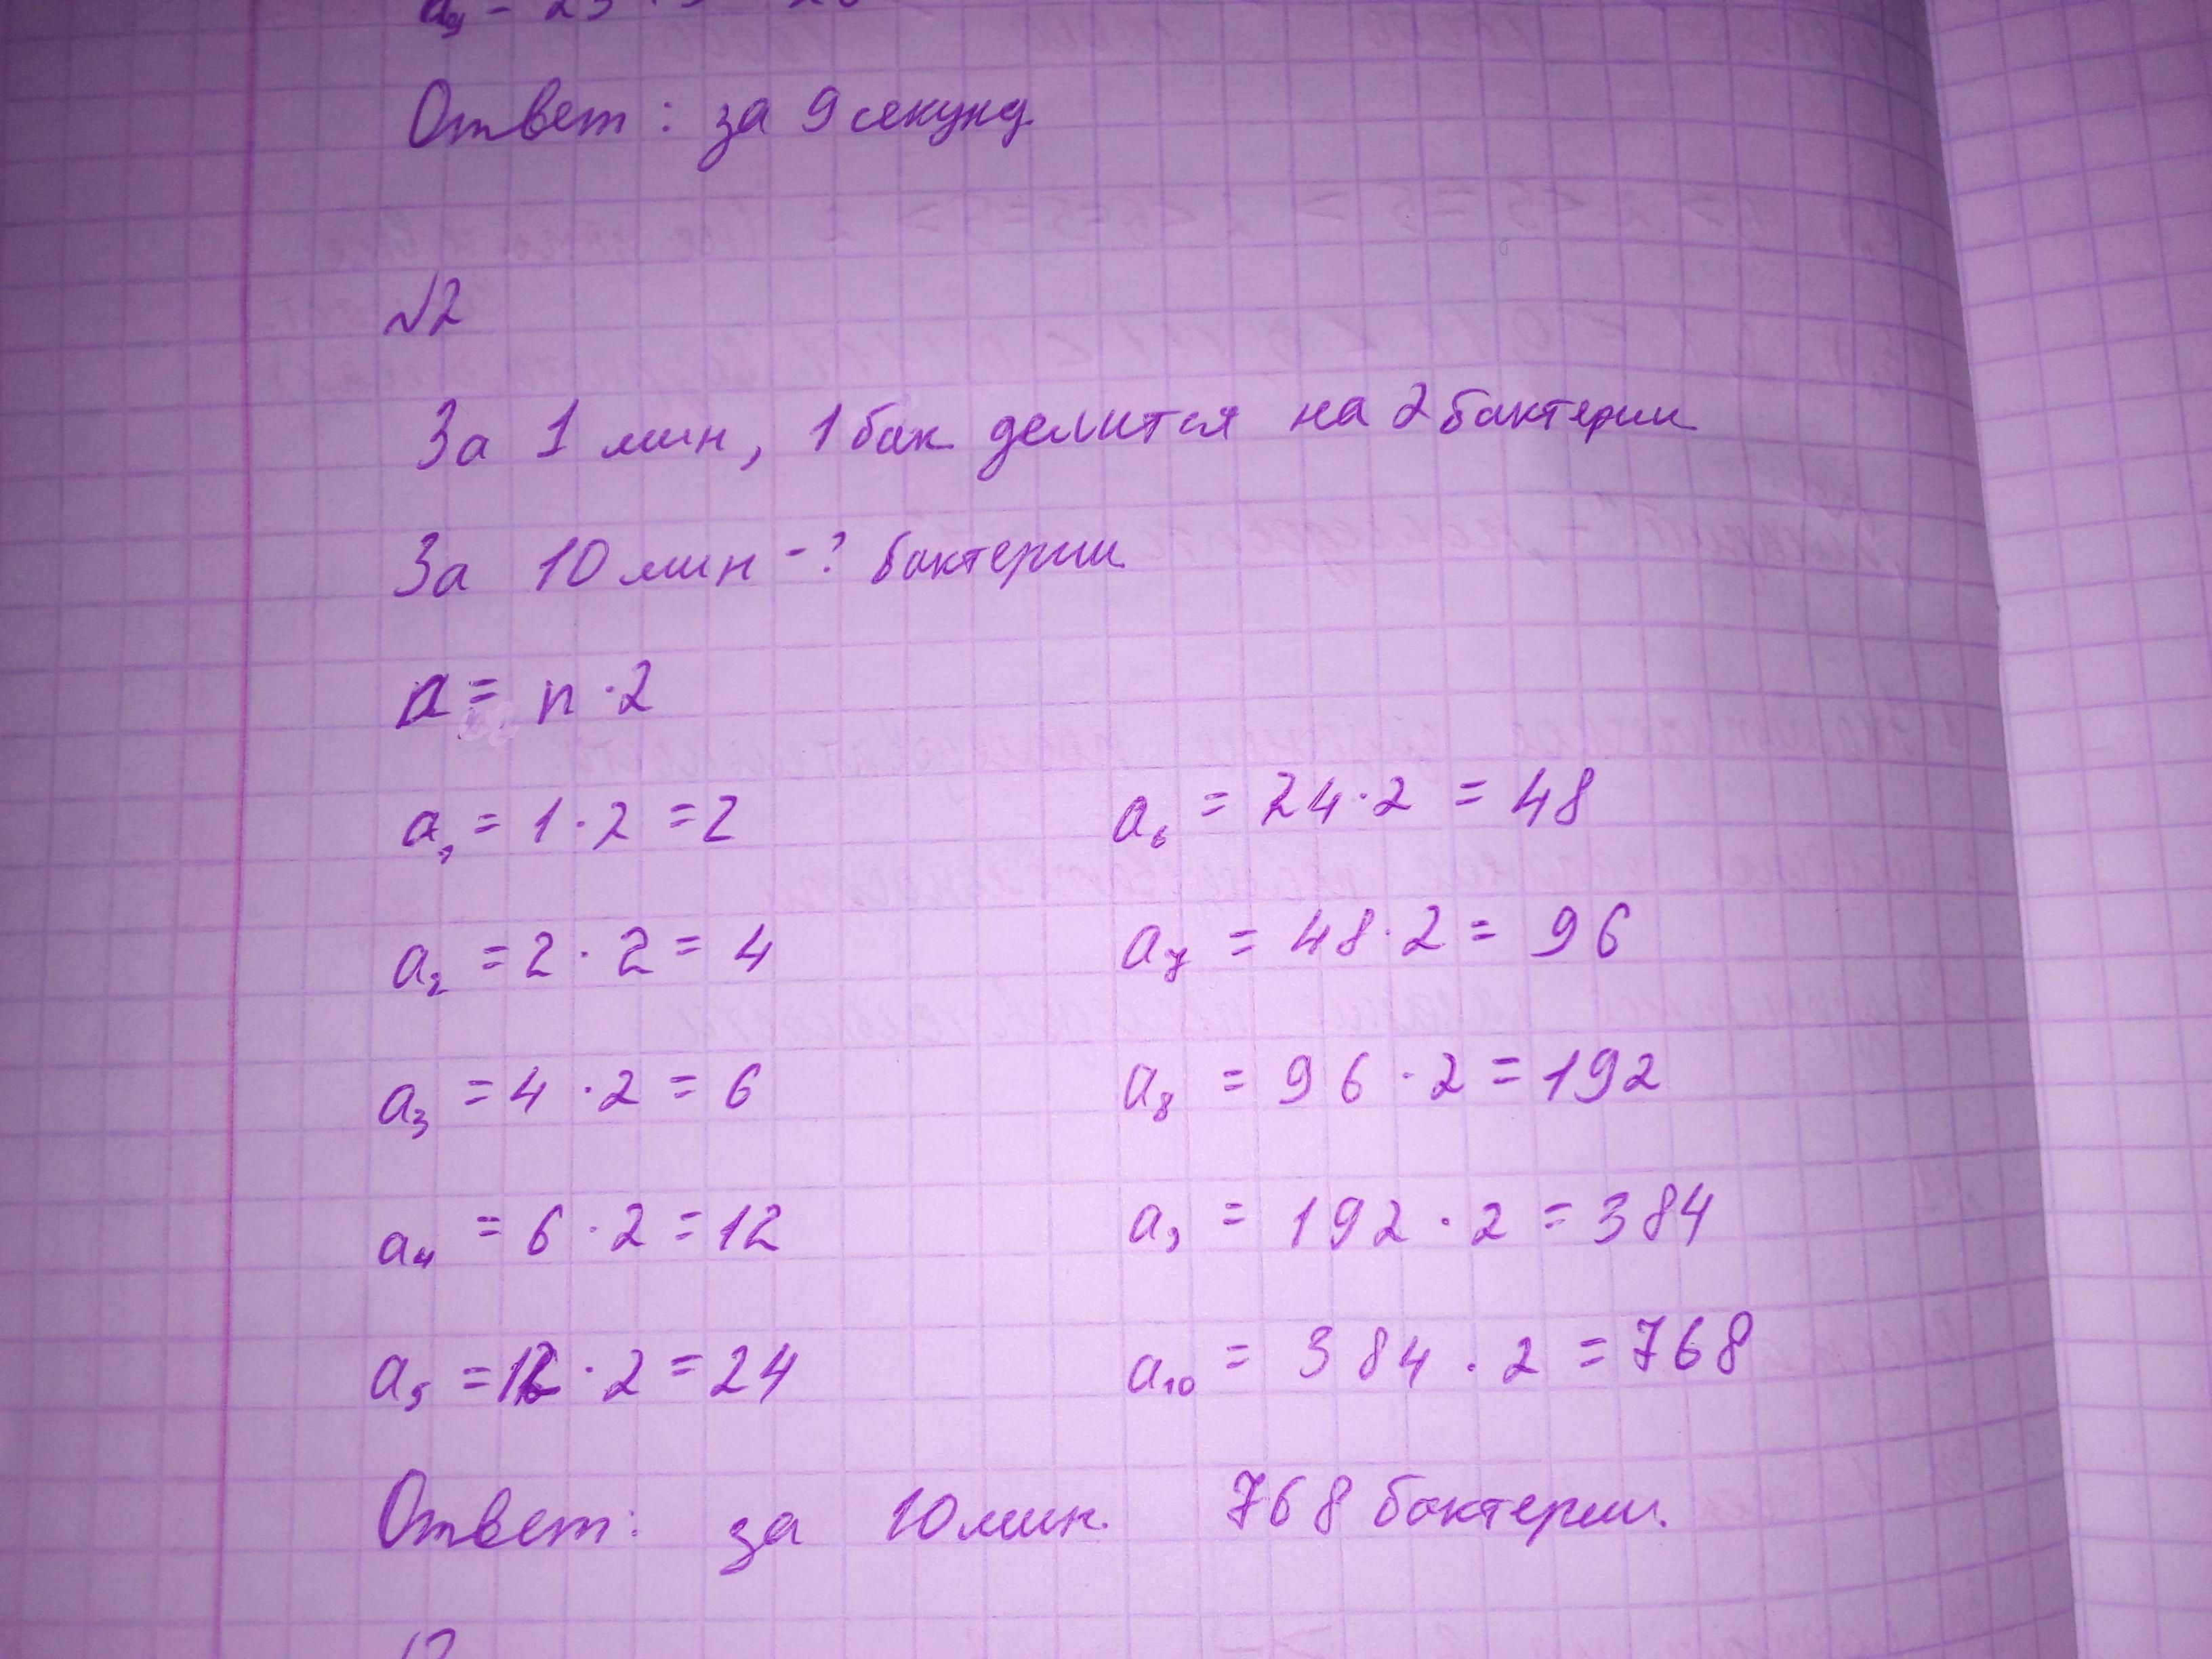 Ответ: за 9 секунд
№2
За 1 мин, 1 бак. делится на 2 бактерии
За 10 мин - ? бактерии
a = n · 2
a₁ = 1 · 2 = 2
a₂ = 2 · 2 = 4
a₃ = 4 · 2 = 6
a₄ = 6 · 2 = 12
a₅ = 12 · 2 = 24
a₆ = 24 · 2 = 48
a₇ = 48 · 2 = 96
a₈ = 96 · 2 = 192
a₉ = 192 · 2 = 384
a₁₀ = 384 · 2 = 768
Ответ: за 10 мин. 768 бактерии.